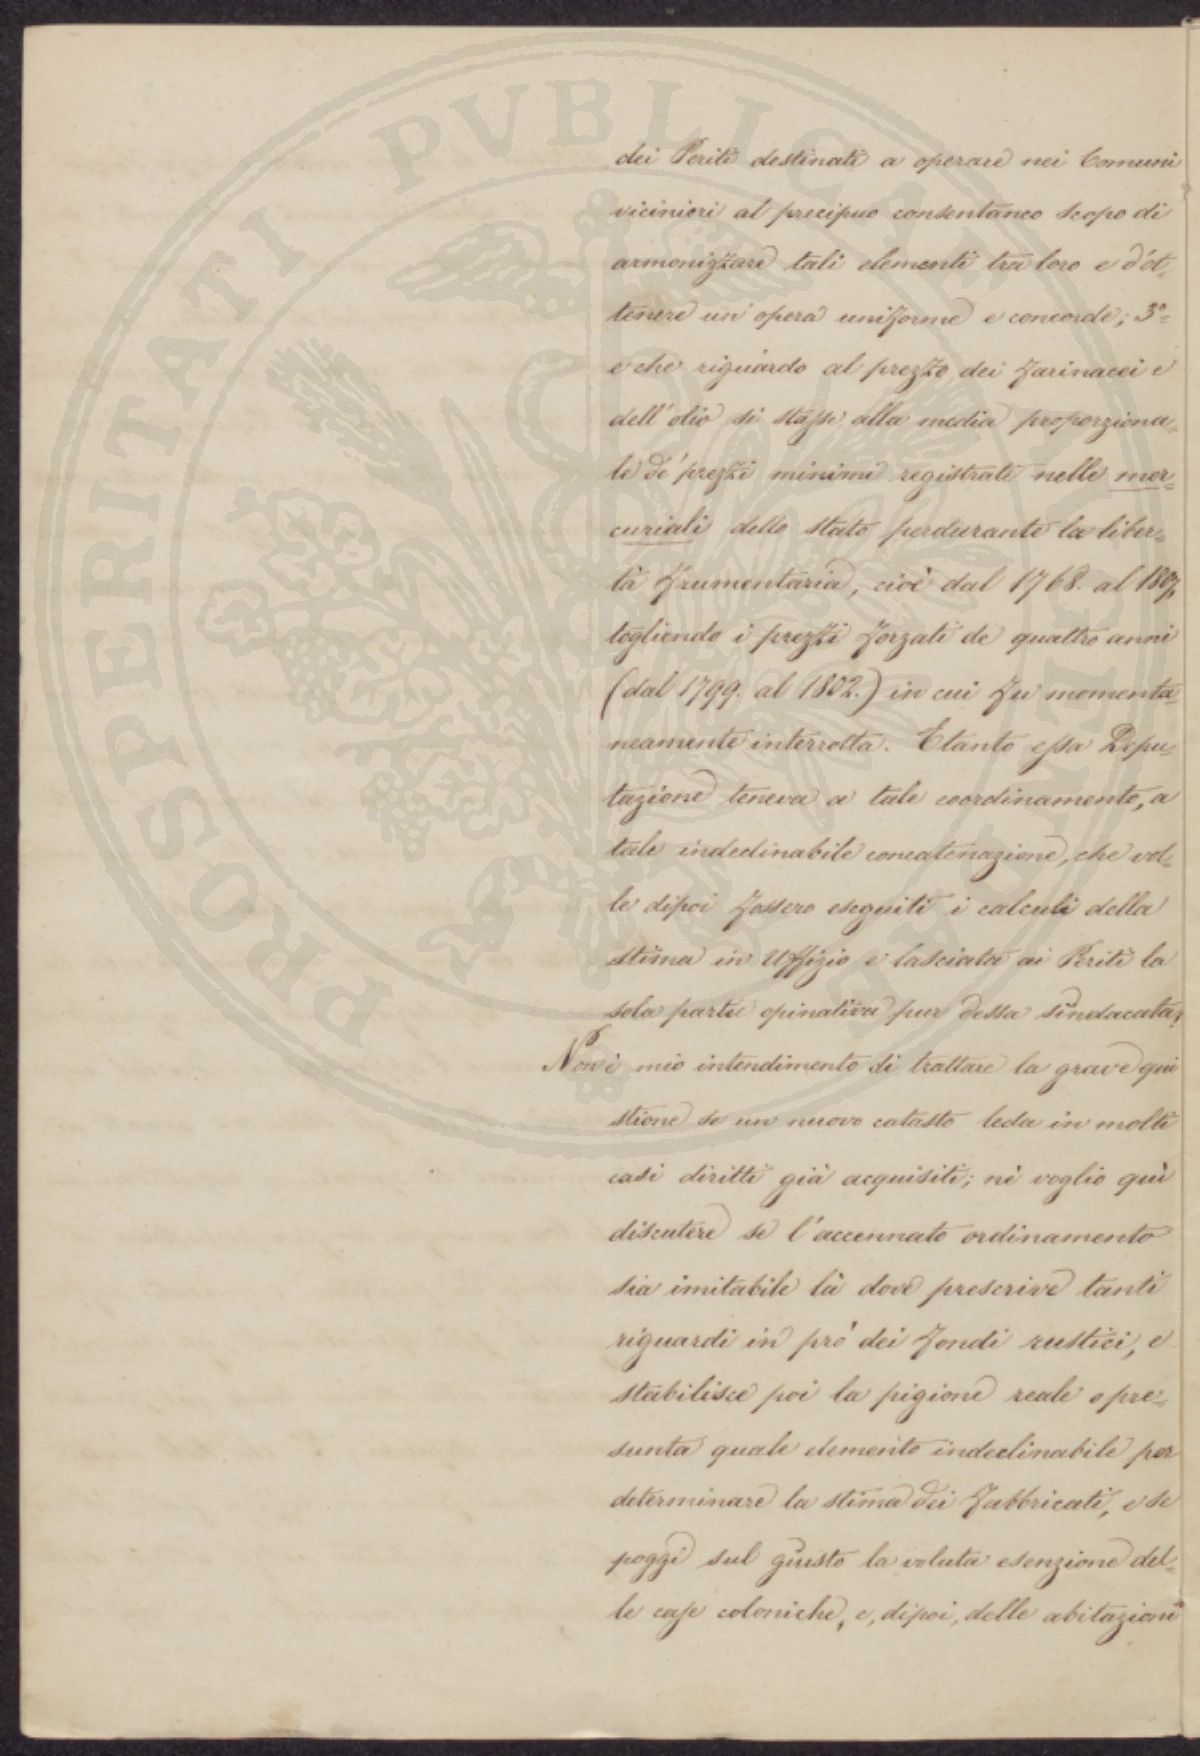 dei Periti destinati a operare nei Comuni
viciniori al precipuo consentaneo scopo di
armonizzare tali elementi tra loro e d'ot-
tenere un'opera uniforme e concorde; 3°=
e che riguardo al prezzo dei farinacci e
dell'olio si stasse alla media proporziona-
le de' prezzi minimi registrati nelle mer-
curiali dello stato perdurante la liber-
tà frumentaria, cioè dal 1768. al 1807,
togliendo i prezzi forzati de quattro anni
(dal 1799. al 1802.) in cui fu momenta-
neamente interrotta. E tanto essa Depu-
tazione teneva a tale coordinamento, a
tale indeclinabile concatenazione, che vol-
le dipoi fossero eseguiti i calculi della
stima in Uffizio e lasciata ai Periti la
sola parte opinativa pur dessa sindacata;
Non è mio intendimento di trattare la grave qui
stione se un nuovo catasto leda in molti
casi diritti già acquisiti; nè voglio quì
discutere se l'accennato ordinamento
sia imitabile là dove prescrive tanti
riguardi in pro' dei fondi rustici, e
stabilisce poi la pigione reale o pre-
sunta quale elemento indeclinabile per
determinare la stima dei fabbricati, e se
poggi sul giusto la voluta esenzione del-
le case coloniche, e, dipoi, delle abitazioni
PROSPERITATI PVBLICAE